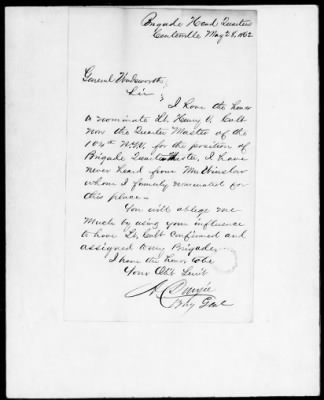 Brigade Head Quarters
Centreville May 28, 1862
General Wadsworth
Sir
I have the honor
to nominate Lt. Henry V. Colt
now the Quarter Master of the
104th N.Y.V. for the position of
Brigade Quartermaster, I have
never heard from Mr Winslow
whom I formerly nominated for
this place
You will oblege me
Much by using your influence
to have Lt. Colt confirmed and
assigned to my Brigade
I have the honor to be
Your Obt Servt
A. Duryée
Brig Genl